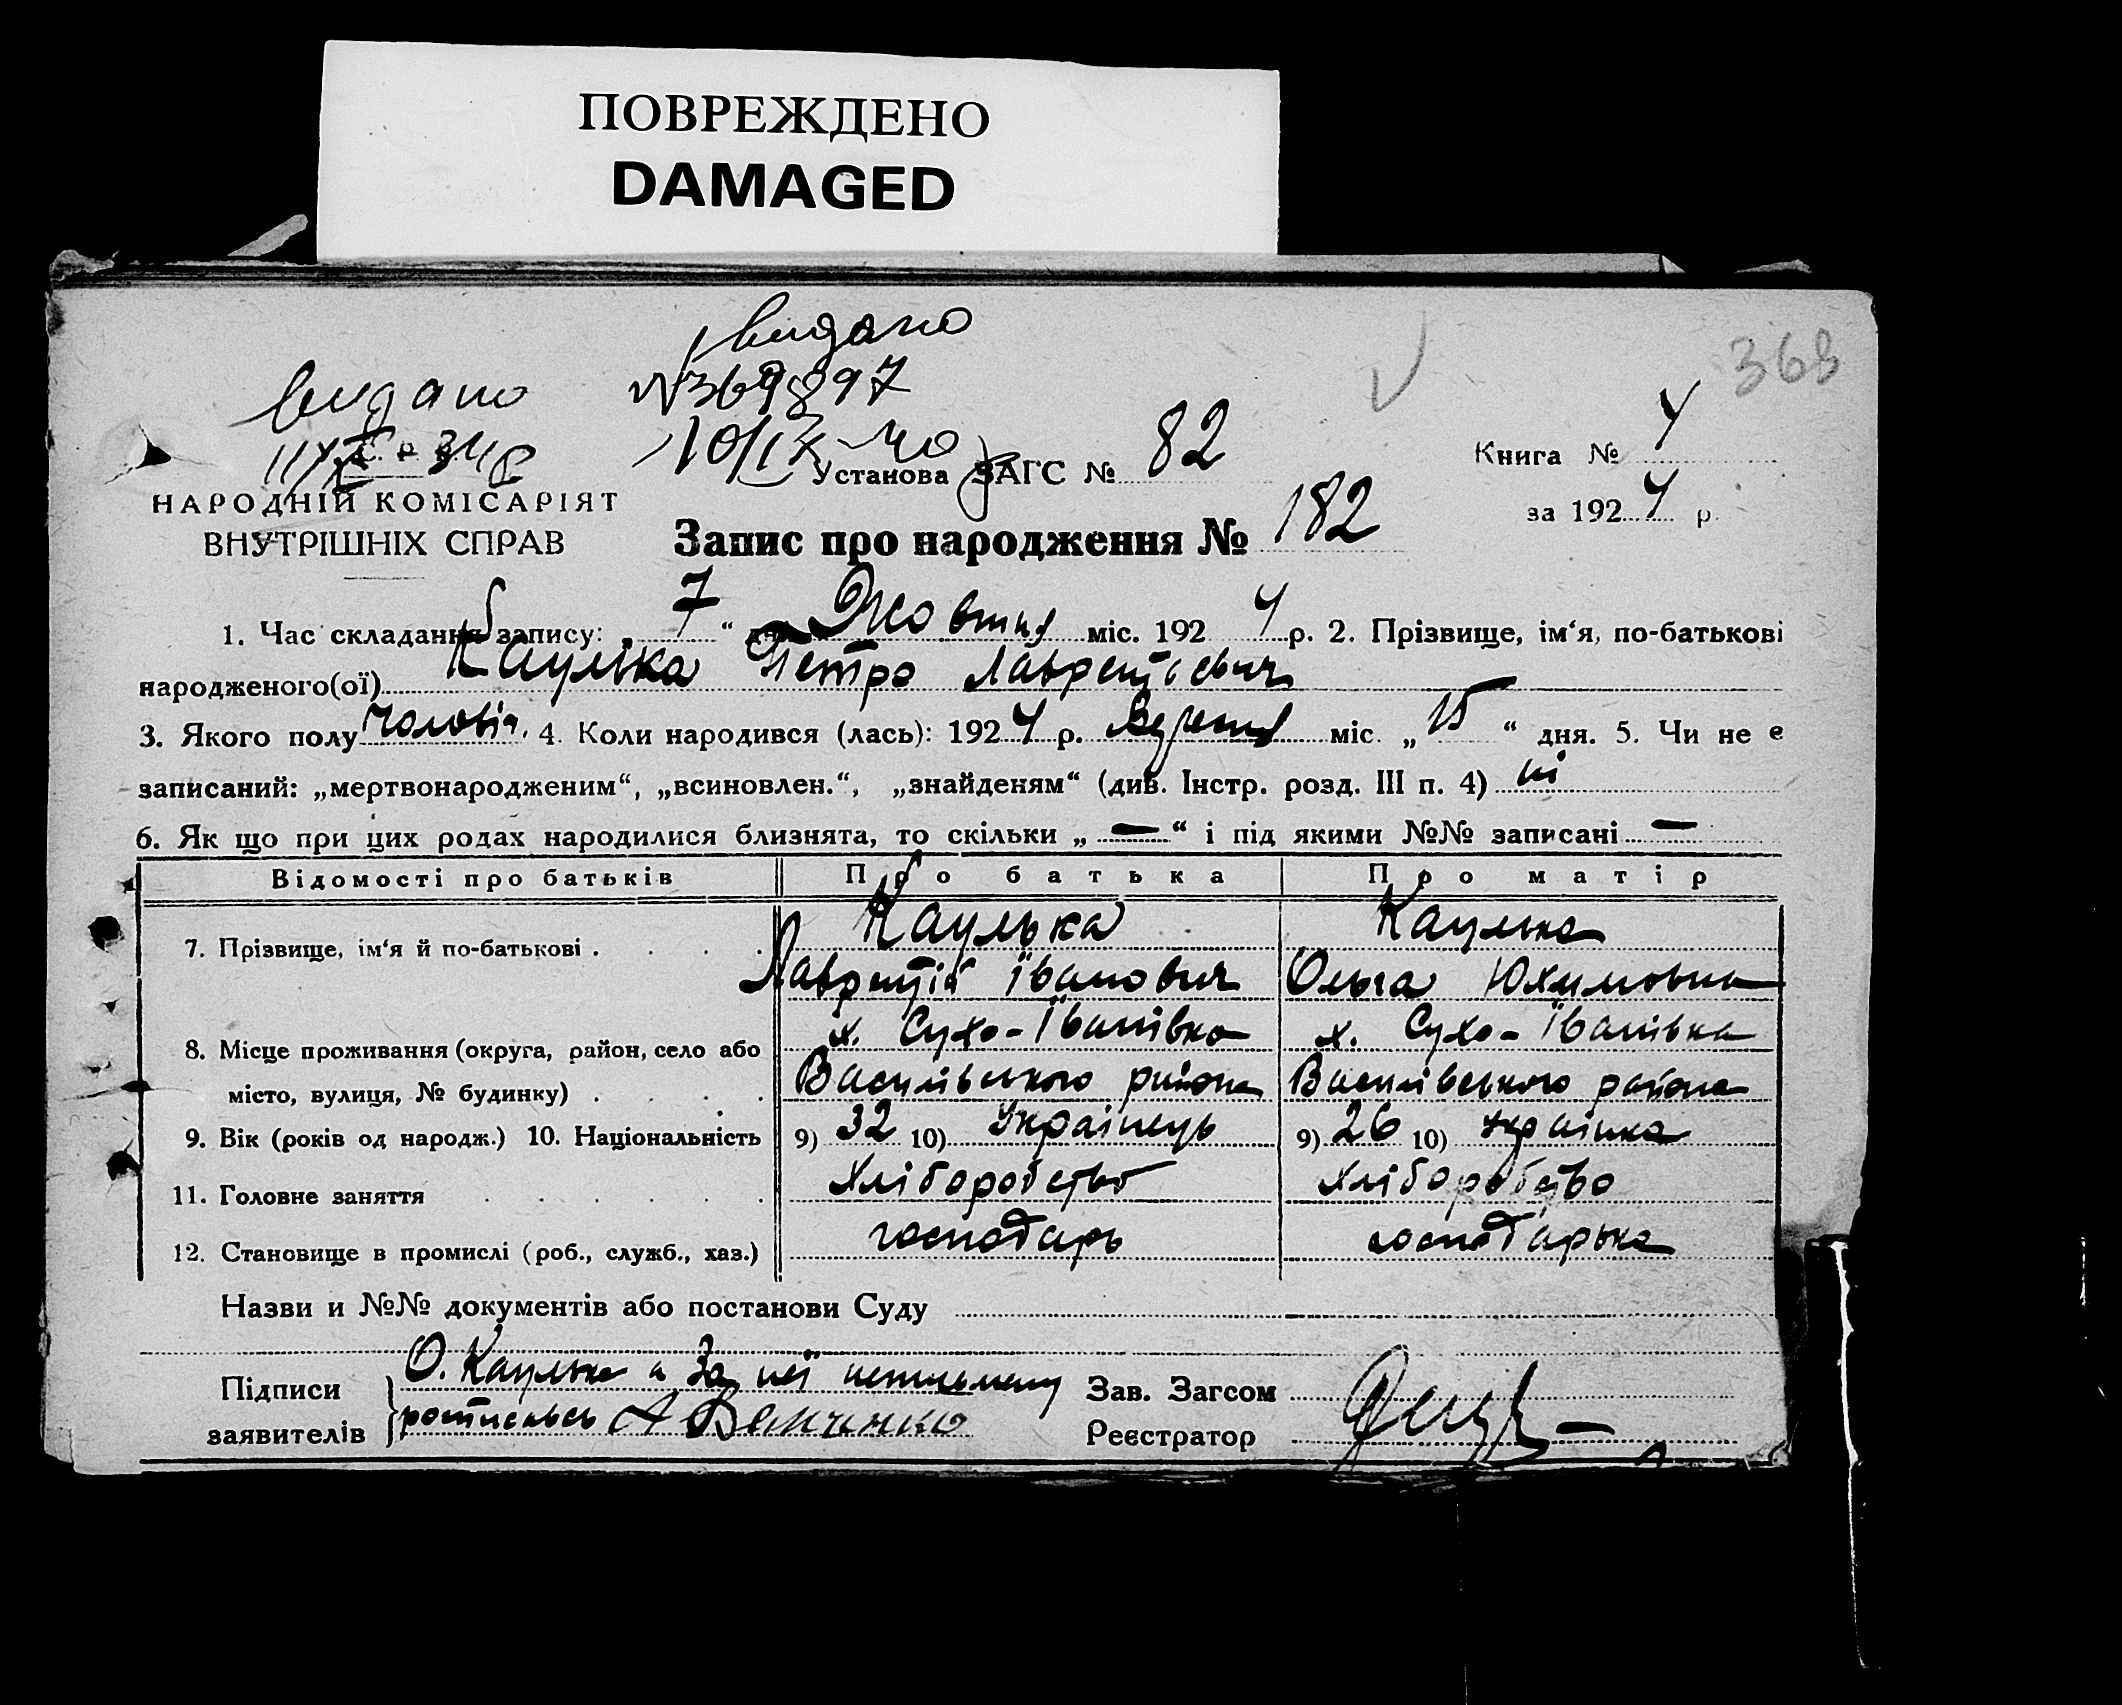 ПОВРЕЖДЕНО
DAMAGED
видано
№369897
368
видано
10/IX-40
Установа ЗАГС № 82
Книга № 4
НАРОДНІЙ КОМІСАРІЯТ
ВНУТРІШНІХ СПРАВ
за 1924 р.
Запис про народження № 182
1. Час складання запису: „ 7 “ дня Жовтня міс. 1924 р. 2. Прізвище, ім‘я, по-батькові
народженого(ої) Каулька Петро Лаврентієвич
3. Якого полу чоловіч. 4. Коли народився (лась): 1924 р. Вересня міс. „ 15 “ дня. 5. Чи не є
записаний: „мертвонародженим“, „всиновлен.“, „знайденям“ (див. Інстр. розд. III п. 4) ні
6. Як що при цих родах народилися близнята, то скільки „ — “ і під якими №№ записані —
Відомості про батьків Про батька Про матір
7. Прізвище, ім‘я й по-батькові . Каулька Каулька
Лаврентій Іванович Ольга Юхимовна
8. Місце проживання (округа, район, село або х. Сухо-Іванівка х. Сухо-Іванівка
місто, вулиця, № будинку) . Василівського района Василівського района
9. Вік (років од народж.) 10. Національність 9) 32 10) Українець 9) 26 10) українка
11. Головне заняття Хліборобство Хліборобство
12. Становище в промислі (роб., служб., хаз.) господарь господарька
Назви и №№ документів або постанови Суду
Підписи О. Каулька а за неї неписьмену Зав. Загсом
заявителів росписавсь Реєстратор